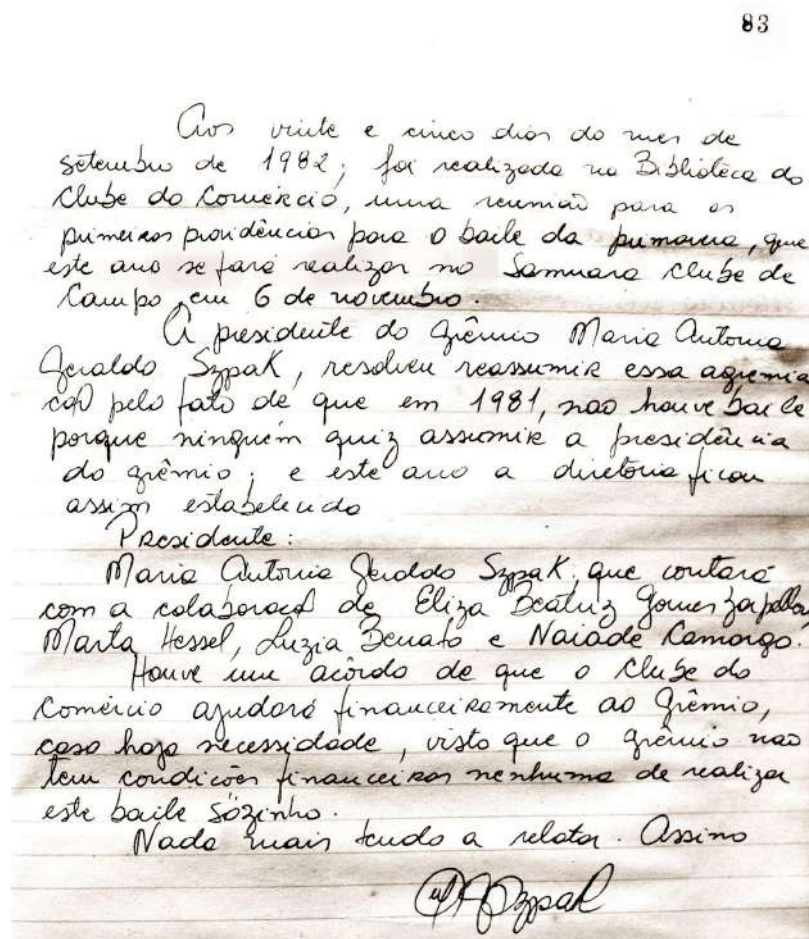 83
Aos vinte e cinco dias do mes de
setembro de 1982; foi realizada na Bibliotéca do
Clube do Comércio, uma reunião para as
primeiras providências para o baile da primavera, que
este ano se fará realizar no Samuara Clube de
Campo, em 6 de novembro.
A presidente do Grêmio Maria Antonia
Geraldo Szpak, resolveu reassumir essa agremia
ção pelo fato de que em 1981, não houve baile
porque ninguém quiz assumir a presidência
do grêmio; e este ano a diretoria ficou
assim estabelecida
Presidente:
Maria Antonia Geraldo Szpak, que contará
com a colaboração de Eliza Beatriz Gomes
Marta Hessel, Luzia Benato e Naiade Camargo.
Houve um acôrdo de que o Clube do
Comércio ajudará financeiramente ao Grêmio,
caso haja necessidade, visto que o grêmio não
tem condições financeiras nenhuma de realizar
este baile sózinho.
Nada mais tendo a relatar. Assino
MASzpak